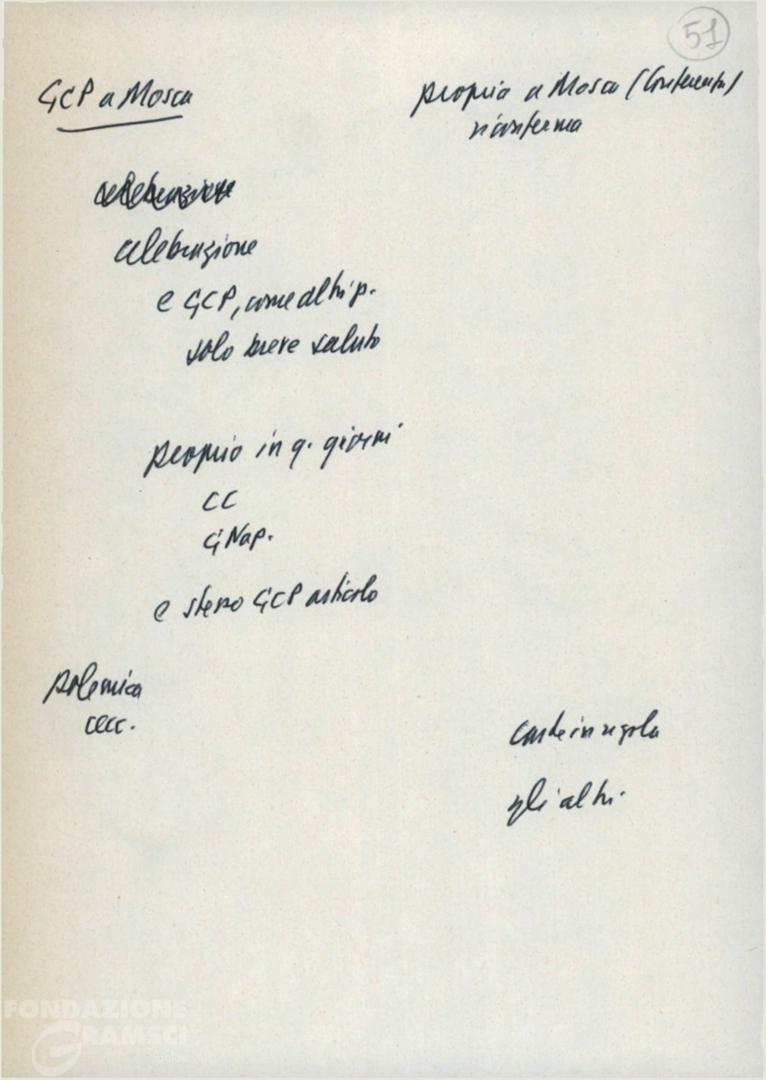 51
GCP a Mosca
proprio a Mosca (Conferenza)
riconferma
celebrazione
celebrazione
e GCP, come altri p.
solo breve saluto
proprio in q. giorni
CC
GNap.
e stesso GCP articolo
polemica
cecc.
carte in regola
gli altri.
FONDAZIONE
GRAMSCI